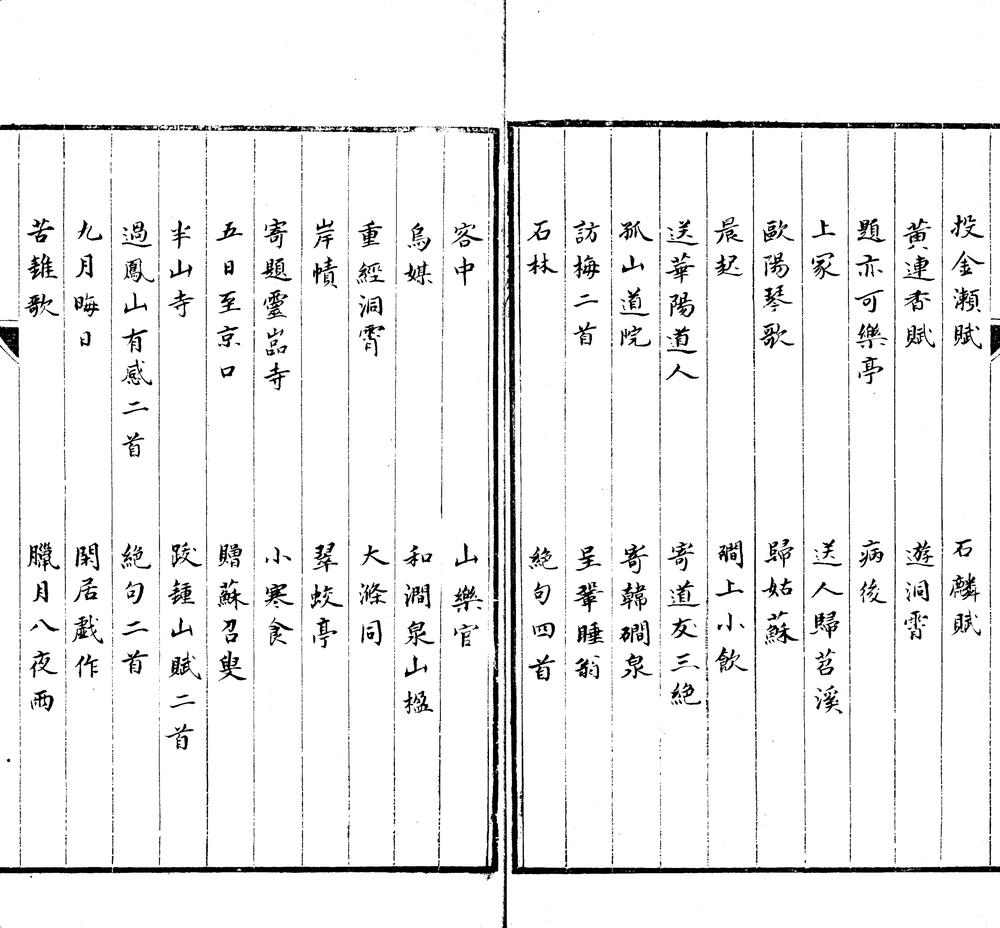 投金瀬賦　石麟賦
黄連香賦　遊洞霄
題亦可樂亭　病後
上冢　送人歸苕溪
歐陽琴歌　歸姑蘇
晨起　磵上小飲
送華陽道人　寄道友三絶
孤山道院　寄韓磵泉
訪梅二首　呈鞏睡翁
石林　絶句四首
容中　山樂官
烏媒　和澗泉山楹
重經洞霄　大滌同
岸幘　翠蛟亭
寄題靈嵓寺　小寒食
五日至京口　贈蘇召叟
半山寺　跋鍾山賦二首
過鳳山有感二首　絶句二首
九月晦日　閑居戲作
苦錐歌　臘月八夜雨